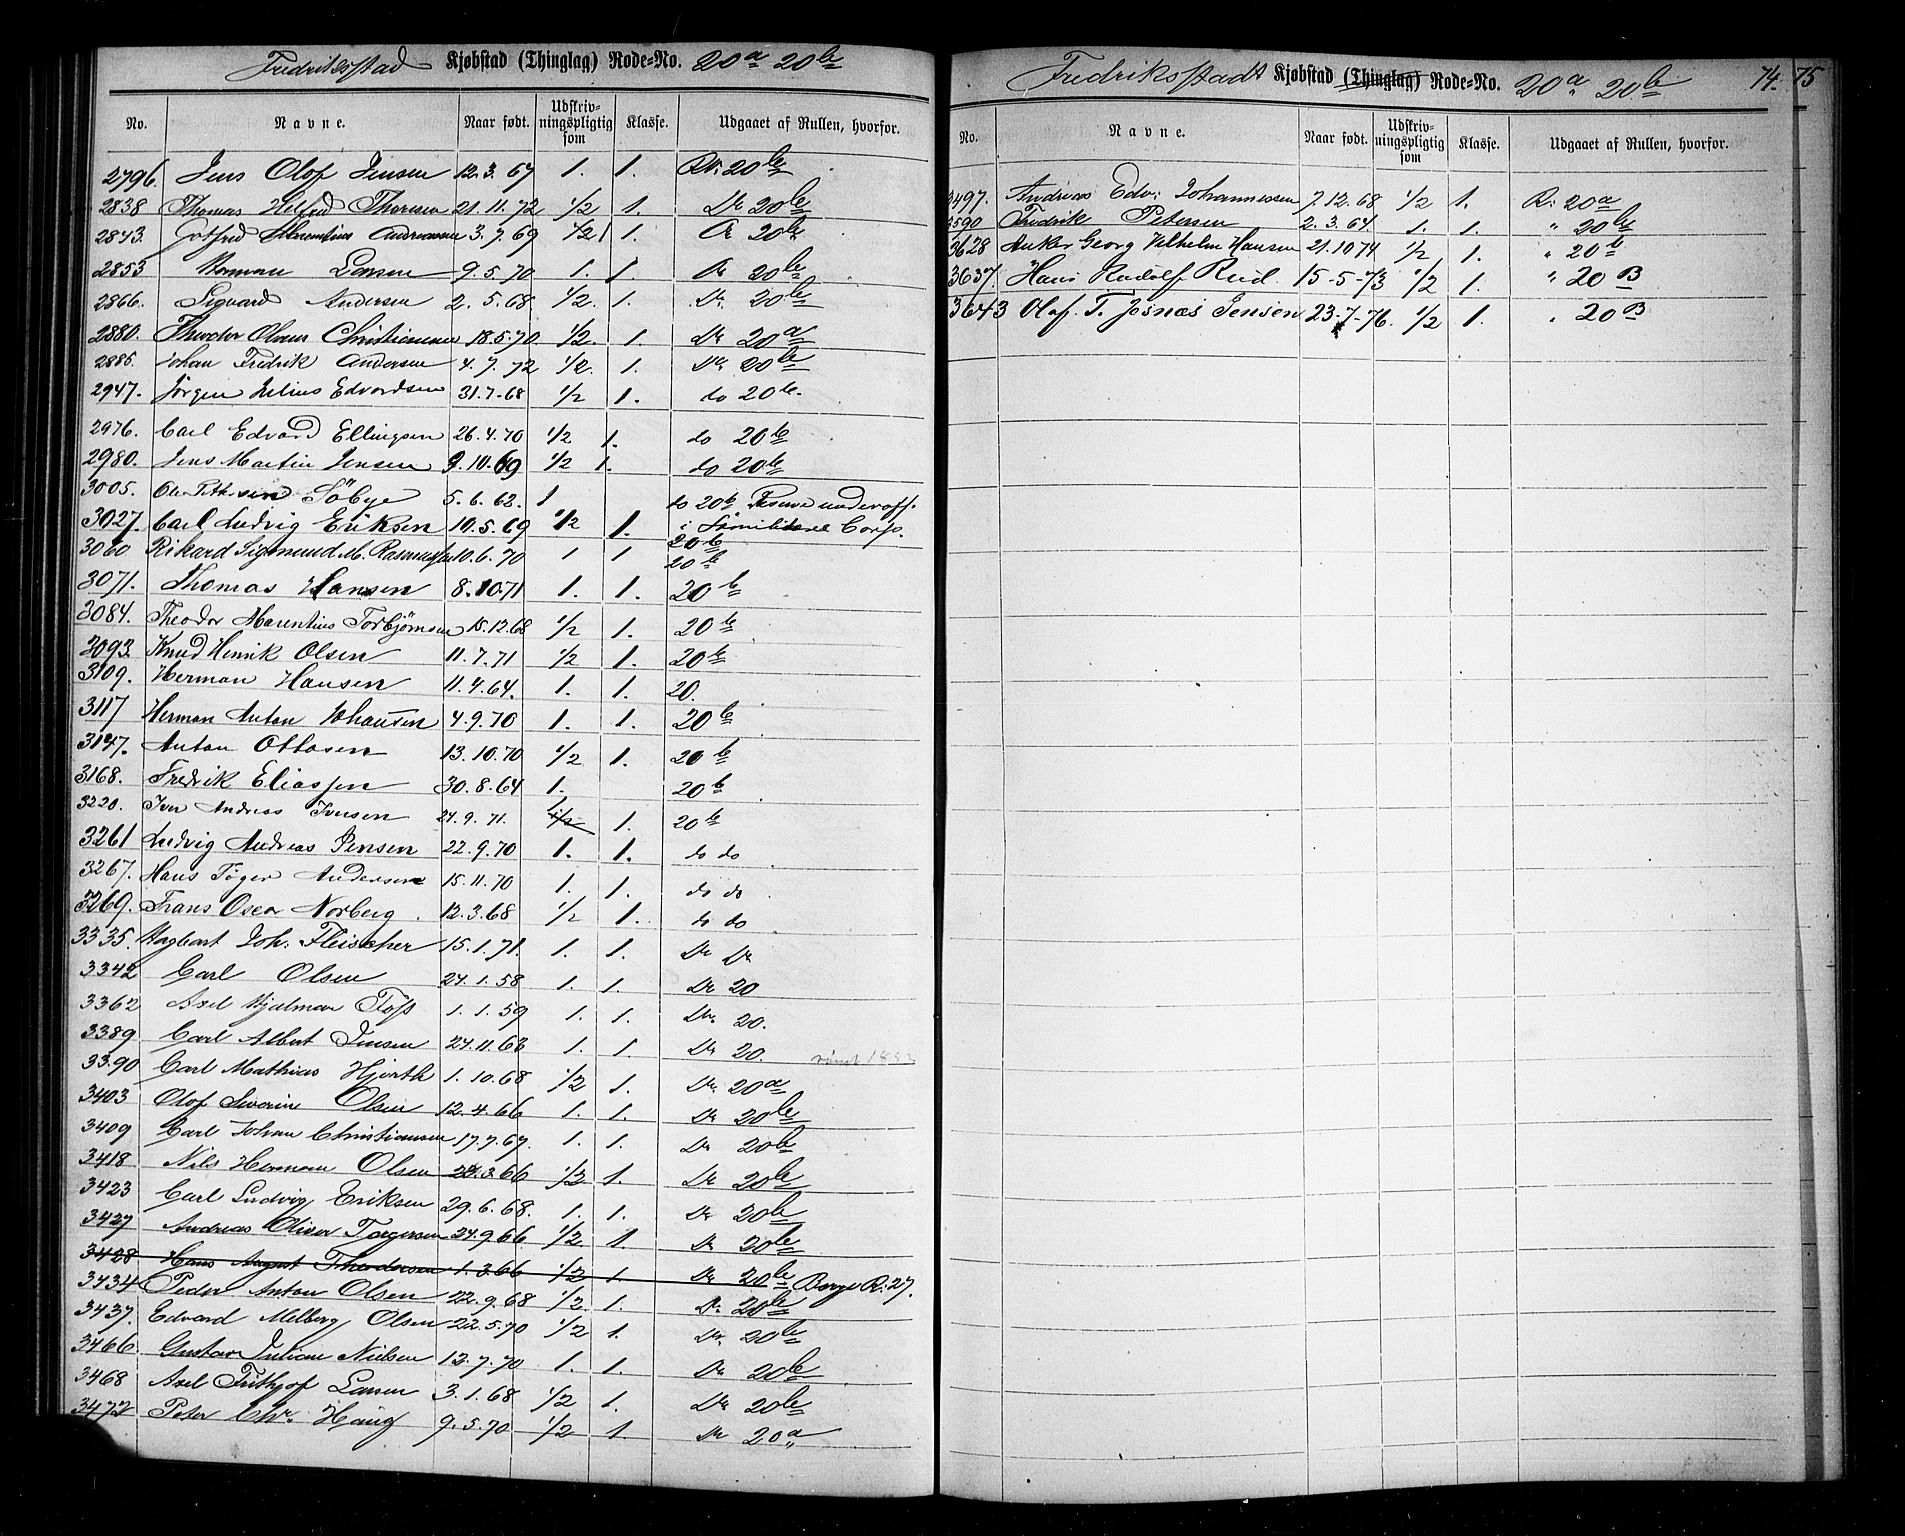 Fredriksstad Kjøbstad (Thinglag) Rode=No. 20a 20b
No. Navne. Naar født. Udskriv-ningspligtig som Klasse. Udgaaet af Rullen, hvorfor.
2796. Jens Olof Jensen 12.3.67 1. 1. R. 20b
2838 Thomas Thoresen 21.11.72 1/2 1. Do 20b
2843. Gotfred Marentius Andreassen 3.7.69 1/2 1. R 20b
2853 Herman Larsen 9.5.70 1. 1. R 20b
2866. Sigvard Andersen 2.5.68 1/2. 1. Do. 20b
2880. Theodor Olaus Christiansen 18.5.70 1/2. 1. Do 20a
2885. Johan Fredrik Andersen 4.7.72 1/2. 1. Do 20b
2947. Jørgen Julius Edvardsen 31.7.68 1/2 1. do 20b.
2976. Carl Edvard Ellingsen 26.4.70 1/2 1. do 20b
2980. Jens Martin Jensen 9.10.69 1/2 1. do 20b
3005. Ole Søbye 5.6.62. 1 do 20b underoff.
i Corps.
3027. Carl Ludvig Eriksen 10.5.69 1/2 1. 20b
3060 Rikard Sigmund M. Rasmussen 10.6.70 1 1 20b
3071. Thomas Hansen 8.10.71 1. 1. 20b
3084. Theodor Marentius Torbjørnsen 15.12.68 1/2 1. 20b
3093. Knud Henrik Olsen 11.7.71 1/2 1. 20b
3109. Herman Hansen 11.4.64. 1. 1. 20.
3117 Herman Anton Johansen 4.9.70 1. 1. 20b
3147. Anton Ottosen 13.10.70 1/2 1. 20b
3168. Fredrik Eliassen 30.8.64 1. 20b
3220. Iver Andreas Iversen 24.9.71. 1/2 1. 20b
3261 Ludvig Andreas Jensen 22.9.70 1. 1. do do
3267. Hans Tøger Andersen 15.11.70 1. 1. do do
3269. Frans Oscar Norberg. 12.3.68 1/2 1. do do
3335. Hagbart Joh. Fleischer 15.1.71. 1. 1. Do Do
3342 Carl Olsen 24.1.58 1. 1. Do 20
3362 Axel Hjalmar 1.1.59 1. 1. Do. 20.
3389 Carl Albert Jensen 24.11.63 1. 1. Do 20.
3390 Carl Mathias Hjorth 1.10.68 1/2 1. Do. 20a
3403 Olof Severin Olsen 12.4.66 1. 1. Do 20b
3409 Carl Johan Christiansen 17.7.67. 1. 1. Do 20b
3418 Nils Herman Olsen 22.3.66 1/2 1. Do 20b
3423 Carl Ludvig Eriksen 29.6.68. 1. 1. Do 20b
3427 Andreas Oliver Torgersen 24.9.66 1/2 1. Do 20b
3428 Hans August Theodorsen 1.3.66 1/2 1. Do 20b Borge R. 27.
3434 Peder Anton Olsen 22.9.68 1/2. 1. Do 20b
3437. Edvard Melberg Olsen 22.5.70 1/2 1. Do. 20b
3466. Gustav Julian Nielsen 12.7.70 1. 1. Do 20b
3468 Axel Frithjof Larsen 3.1.68 1/2 1. Do 20b
3472 Peter Chr. Haug 9.5.70 1/2 1. Do 20a
Fredriksstadt Kjøbstad (Thinglag) Rode=No. 20a 20b 74. 75
No. Navne. Naar født. Udskriv-ningspligtig som Klasse. Udgaaet af Rullen, hvorfor.
3497. Andreas Edv: Johannessen 7.12.68 1/2 1. R: 20a
3590 Fredrik Petersen 2.3.64 1. 1. " 20b
3628 Anker Georg Vilhelm Hansen 21.10.74 1/2 1. " 20b
3637. Hans Rudolf Rud. 15-5-73 1/2 1. " 20 B
3643 Olaf. T. Josnæs Jensen 23-7-76. 1/2 1. " 20B